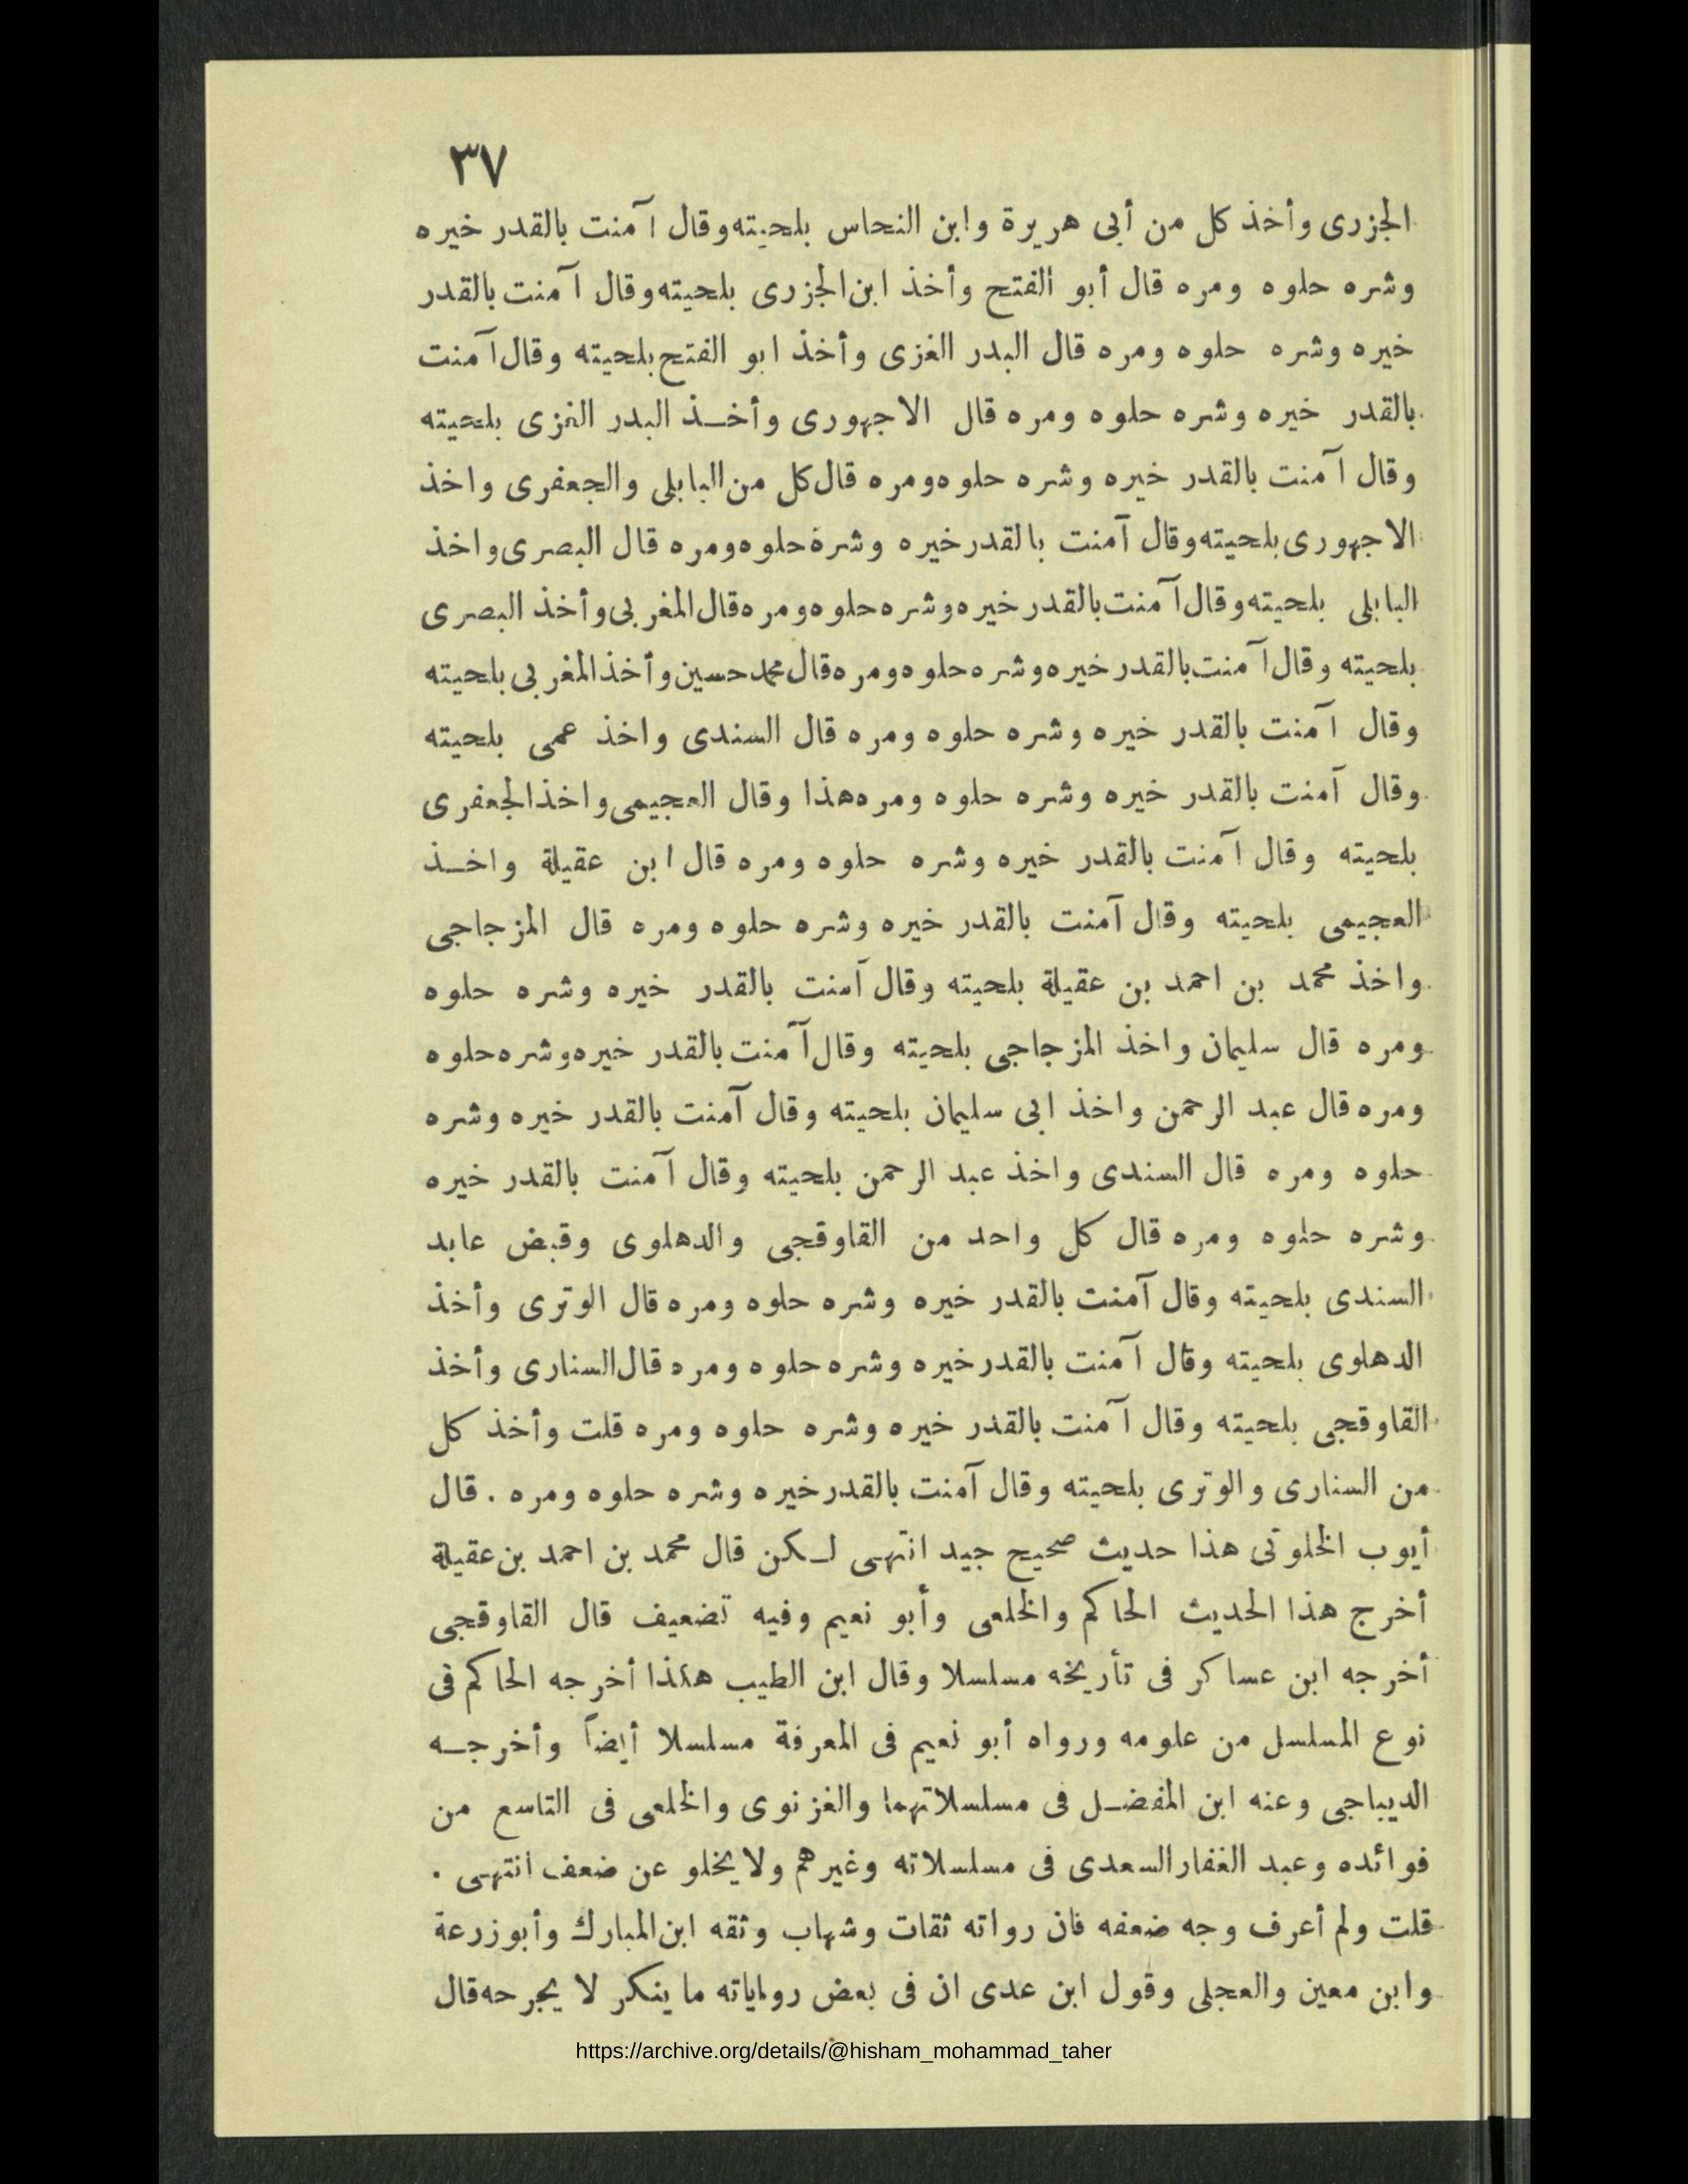 ٣٧
الجزرى وأخذ كل من أبى هريرة وابن النحاس بلحيته وقال آمنت بالقدر خيره
وشره حلوه ومره قال أبو الفتح وأخذ ابن الجزرى بلحيته وقال آمنت بالقدر
خيره وشره حلوه ومره قال البدر الغزى وأخذ ابو الفتح بلحيته وقال آمنت
بالقدر خيره وشره حلوه ومره قال الاجهورى وأخـذ البدر الغزى بلحيته
وقال آمنت بالقدر خيره وشره حلوه ومره قال كل من البابلى والجعفرى واخذ
الاجهورى بلحيته وقال آمنت بالقدر خيره وشره حلوه ومره قال البصرى واخذ
البابلى بلحيته وقال آمنت بالقدر خيره وشره حلوه ومره قال المغربى وأخذ البصرى
بلحيته وقال آمنت بالقدر خيره وشره حلوه ومره قال محمد حسين وأخذ المغربى بلحيته
وقال آمنت بالقدر خيره وشره حلوه ومره قال السندى واخذ عمى بلحيته
وقال آمنت بالقدر خيره وشره حلوه ومره هذا وقال العجيمى واخذ الجعفرى
بلحيته وقال آمنت بالقدر خيره وشره حلوه ومره قال ابن عقيلة واخـذ
العجيمى بلحيته وقال آمنت بالقدر خيره وشره حلوه ومره قال المزجاجى
واخذ محمد بن احمد بن عقيلة بلحيته وقال آمنت بالقدر خيره وشره حلوه
ومره قال سليمان واخذ المزجاجى بلحيته وقال آمنت بالقدر خيره وشره حلوه
ومره قال عبد الرحمن واخذ ابى سليمان بلحيته وقال آمنت بالقدر خيره وشره
حلوه ومره قال السندى واخذ عبد الرحمن بلحيته وقال آمنت بالقدر خيره
وشره حلوه ومره قال كل واحد من القاوقجى والدهلوى وقبض عابد
السندى بلحيته وقال آمنت بالقدر خيره وشره حلوه ومره قال الوترى وأخذ
الدهلوى بلحيته وقال آمنت بالقدر خيره وشره حلوه ومره قال السنارى وأخذ
القاوقجى بلحيته وقال آمنت بالقدر خيره وشره حلوه ومره قلت وأخذ كل
من السنارى والوترى بلحيته وقال آمنت بالقدر خيره وشره حلوه ومره . قال
أيوب الخلوتى هذا حديث صحيح جيد انتهى لـكن قال محمد بن احمد بن عقيلة
أخرج هذا الحديث الحاكم والخلعى وأبو نعيم وفيه تضعيف قال القاوقجى
أخرجه ابن عساكر فى تأريخه مسلسلا وقال ابن الطيب هكذا أخرجه الحاكم فى
نوع المسلسل من علومه ورواه أبو نعيم فى المعرفة مسلسلا أيضاً وأخرجـه
الديباجى وعنه ابن المفضـل فى مسلسلاتهما والغزنوى والخلعى فى التاسع من
فوائده وعبد الغفار السعدى فى مسلسلاته وغيرهم ولا يخلو عن ضعف انتهى .
قلت ولم أعرف وجه ضعفه فان رواته ثقات وشهاب وثقه ابن المبارك وأبو زرعة
وابن معين والعجلى وقول ابن عدى ان فى بعض رواياته ما ينكر لا يجرحه قال
https://archive.org/details/@hisham_mohammad_taher